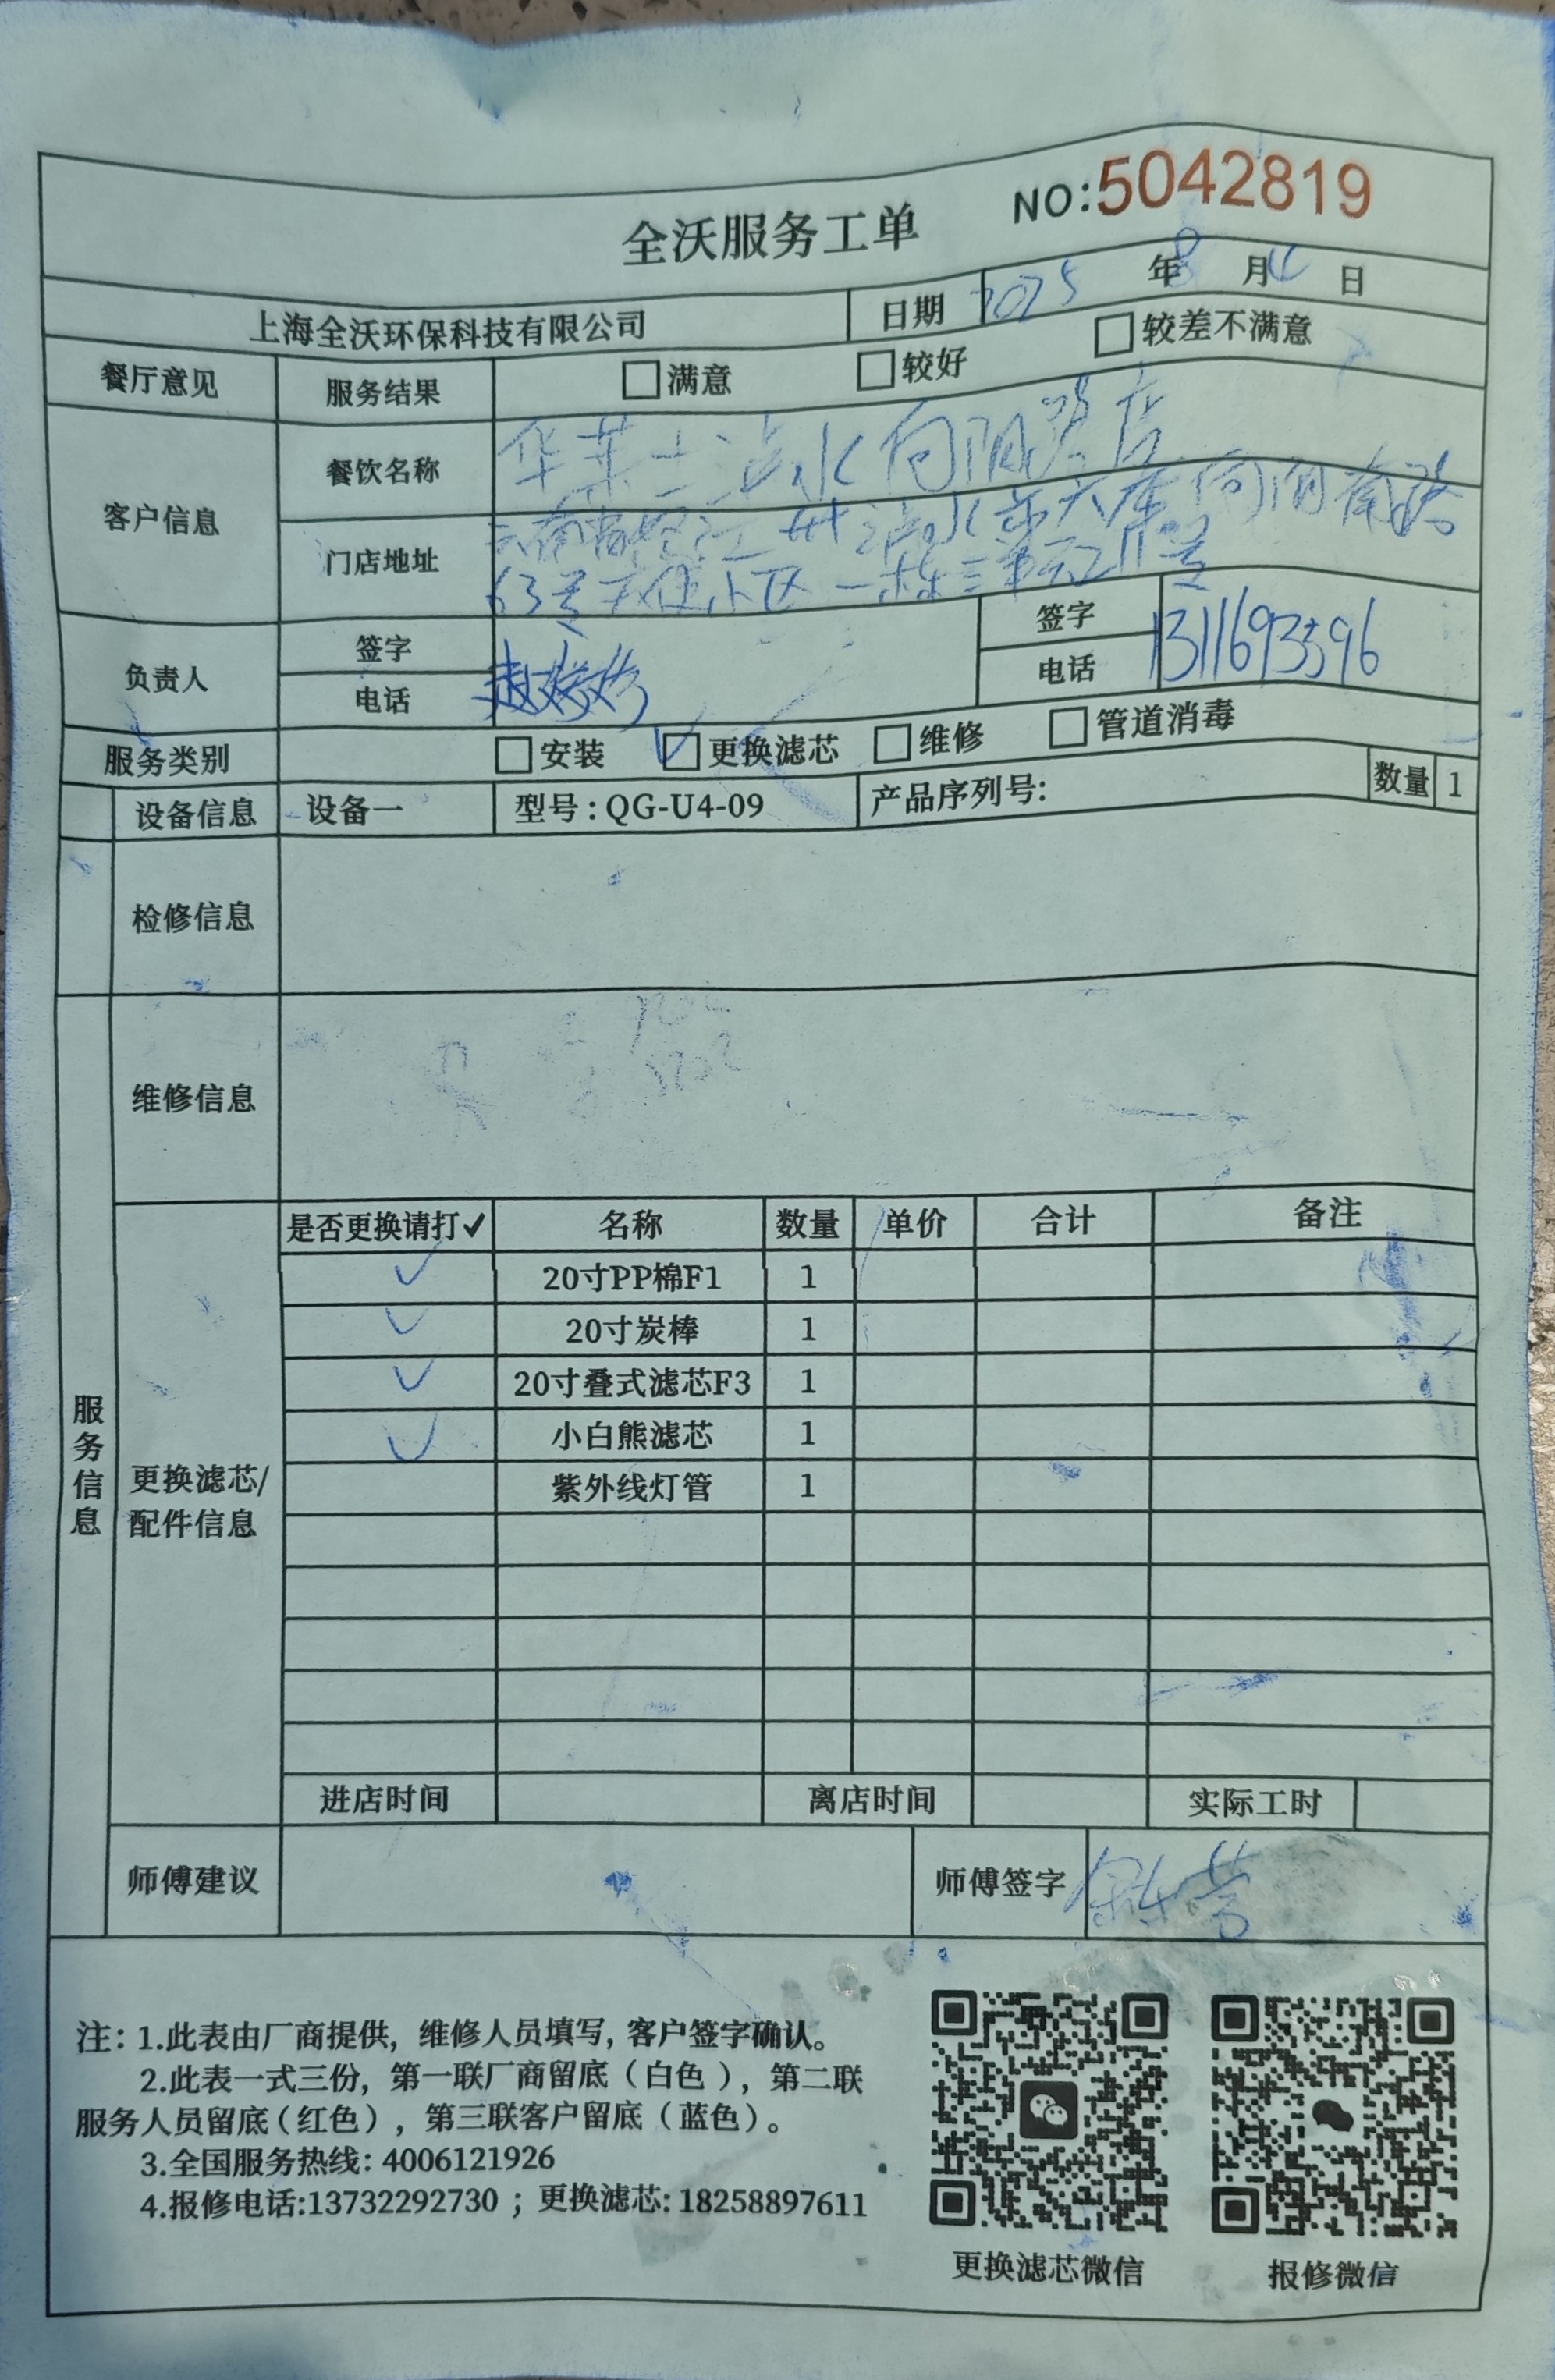 NO:5042819
全沃服务工单
上海全沃环保科技有限公司 日期 2025 年 8 月 4 日
餐厅意见 服务结果 □满意 □较好 □较差不满意
客户信息 餐饮名称 华莱士泸水向阳路店
门店地址 云南省怒江州泸水市六库向阳南路
63号 小区一栋三单元211号
负责人 签字 签字
电话 电话 13116933396
服务类别 □安装 ✓□更换滤芯 □维修 □管道消毒
设备信息 设备一 型号:QG-U4-09 产品序列号: 数量 1
检修信息
维修信息
服务信息
更换滤芯/配件信息
是否更换请打✓ 名称 数量 单价 合计 备注
✓ 20寸PP棉F1 1
✓ 20寸炭棒 1
✓ 20寸叠式滤芯F3 1
✓ 小白熊滤芯 1
紫外线灯管 1
进店时间 离店时间 实际工时
师傅建议 师傅签字
注: 1.此表由厂商提供, 维修人员填写, 客户签字确认。
2.此表一式三份, 第一联厂商留底(白色), 第二联
服务人员留底(红色), 第三联客户留底(蓝色)。
3.全国服务热线: 4006121926
4.报修电话:13732292730 ; 更换滤芯: 18258897611
更换滤芯微信 报修微信